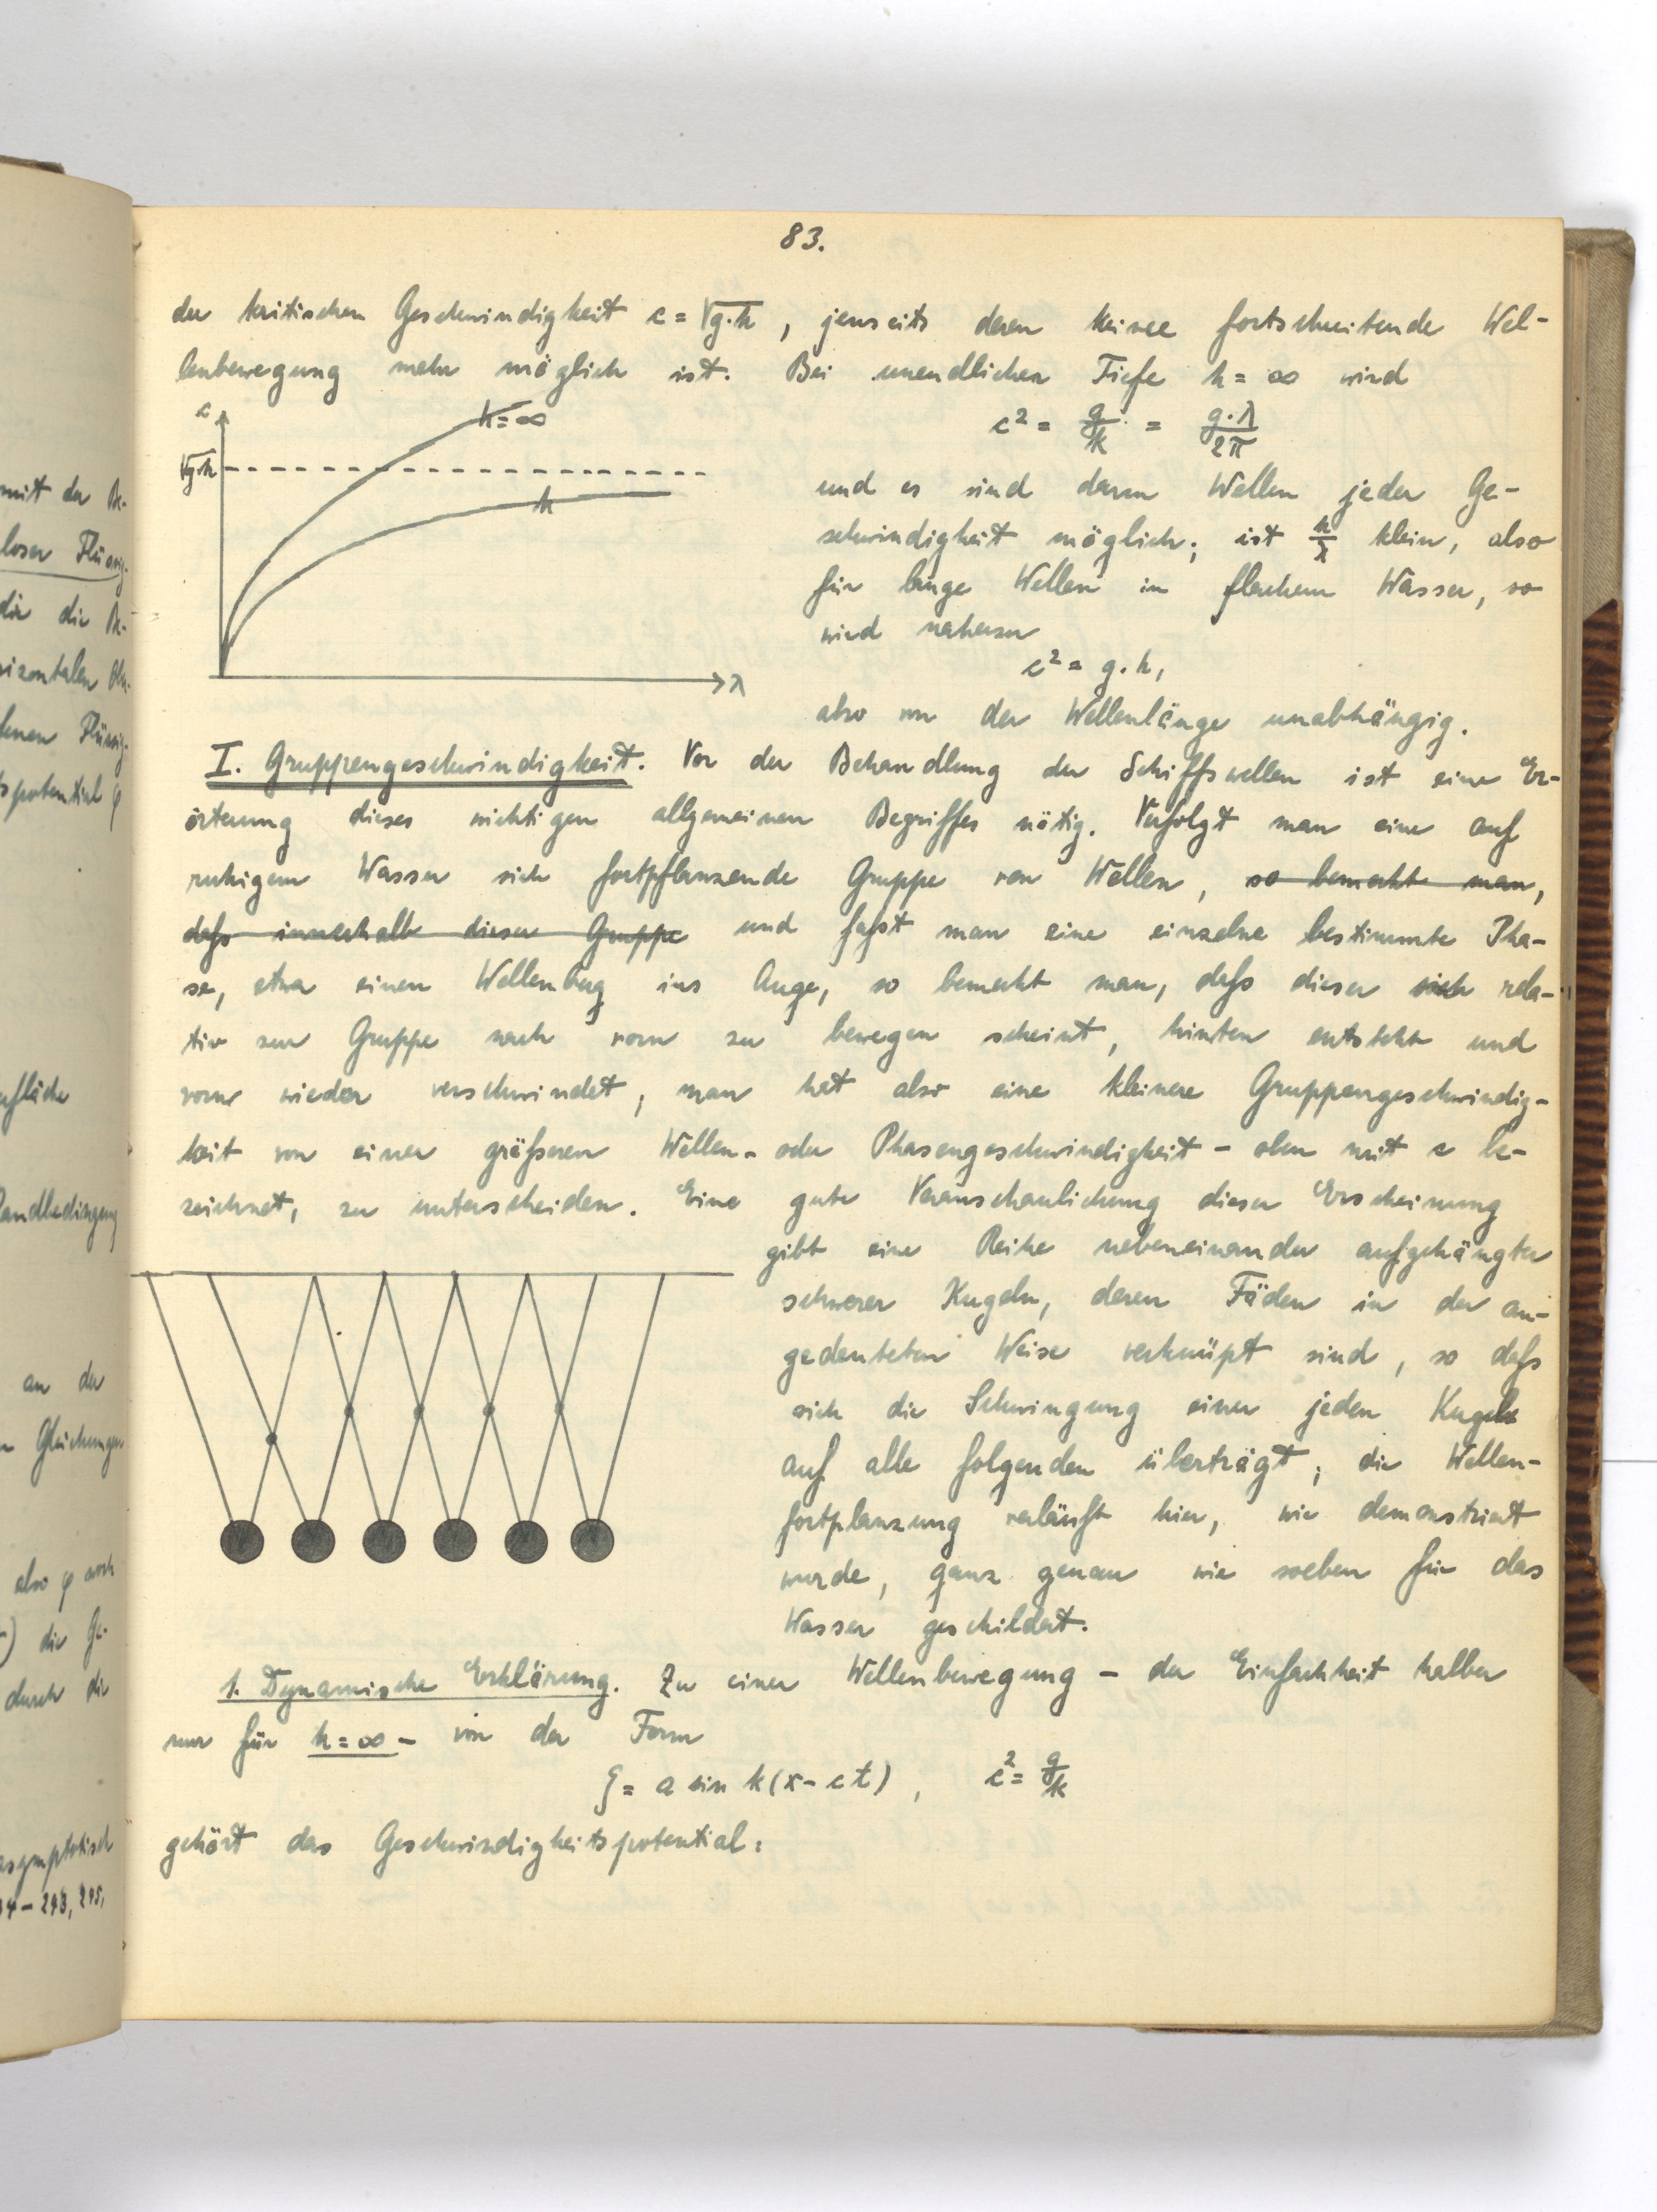 83.
der kritischen Geschwindigkeit c = √g·h, jenseits deren keine fortschreitende Wel-
lenbewegung mehr möglich ist. Bei unendlicher Tiefe h = ∞ wird
c² = g/k = g·λ/2π
c
h = ∞
√g·h
h
λ
und es sind dann Wellen jeder Ge-
schwindigkeit möglich; ist h/λ klein, also
für lange Wellen in flachem Wasser, so
wird
c² = g·h,
also von der Wellenlänge unabhängig.
I. Gruppengeschwindigkeit. Vor der Behandlung der Schiffswellen ist eine Er-
örterung dieses wichtigen allgemeinen Begriffes nötig. Verfolgt man eine auf
ruhigem Wasser sich fortpflanzende Gruppe von Wellen, so bemerkt man,
daß innerhalb dieser Gruppe und faßt man eine einzelne bestimmte Pha-
se, etwa einen Wellenberg ins Auge, so bemerkt man, daß dieser sich rela-
tiv zur Gruppe nach vorn zu bewegen scheint, hinten entsteht und
vorne wieder verschwindet, man hat also eine kleinere Gruppengeschwindig-
keit von einer größeren Wellen- oder Phasengeschwindigkeit – oben mit c be-
zeichnet, zu unterscheiden. Eine gute Veranschaulichung dieser Erscheinung
gibt eine Reihe nebeneinander aufgehängter
schwerer Kugeln, deren Fäden in der an-
gedeuteten Weise verknüpft sind, so daß
sich die Schwingung einer jeden Kugel
auf alle folgenden überträgt; die Wellen-
fortplanzung verläuft hier, wie demonstriert
wurde, ganz genau wie soeben für das
Wasser geschildert.
1. Dynamische Erklärung. Zu einer Wellenbewegung – der Einfachheit halber
nur für h = ∞ – von der Form
ζ = a sin k(x - ct), c² = g/k
gehört das Geschwindigkeitspotential:
mit der Be-
loser Flüssig-
die die Be-
rizontalen
Flüssig-
spotential φ
ufläche
andbedingung
an der
Gleichungen
also φ auch
) die Ge-
durch die
asymptotisch